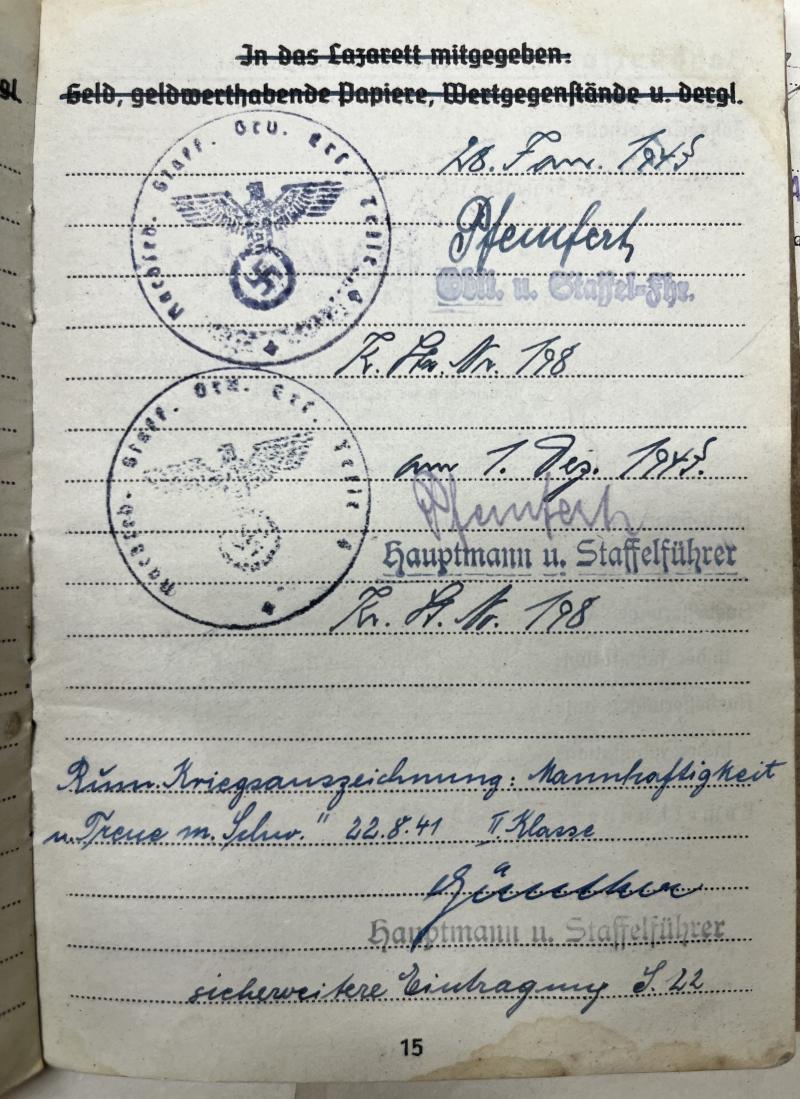 In das Lazarett mitgegeben:
Geld, geldwerthabende Papiere, Wertgegenstände u. dergl.
Nachsch. Staff. Ord. Erf. Teile
28. Jan. 1945
Pfemfert
Obltl. u. Staffel-Fhr.
K. Str. Nr. 198
Nachsch. Staff. Ord. Erf. Teile
am 1. Dez. 1945.
Pfemfert
Hauptmann u. Staffelführer
Kr. St. Nr. 198
Rum. Kriegsauszeichnung: Mannhaftigkeit
u. Treue m. Schw." 22.8.41 II Klasse
Günther
Hauptmann u. Staffelführer
siehe weitere Eintragung S. 22
15